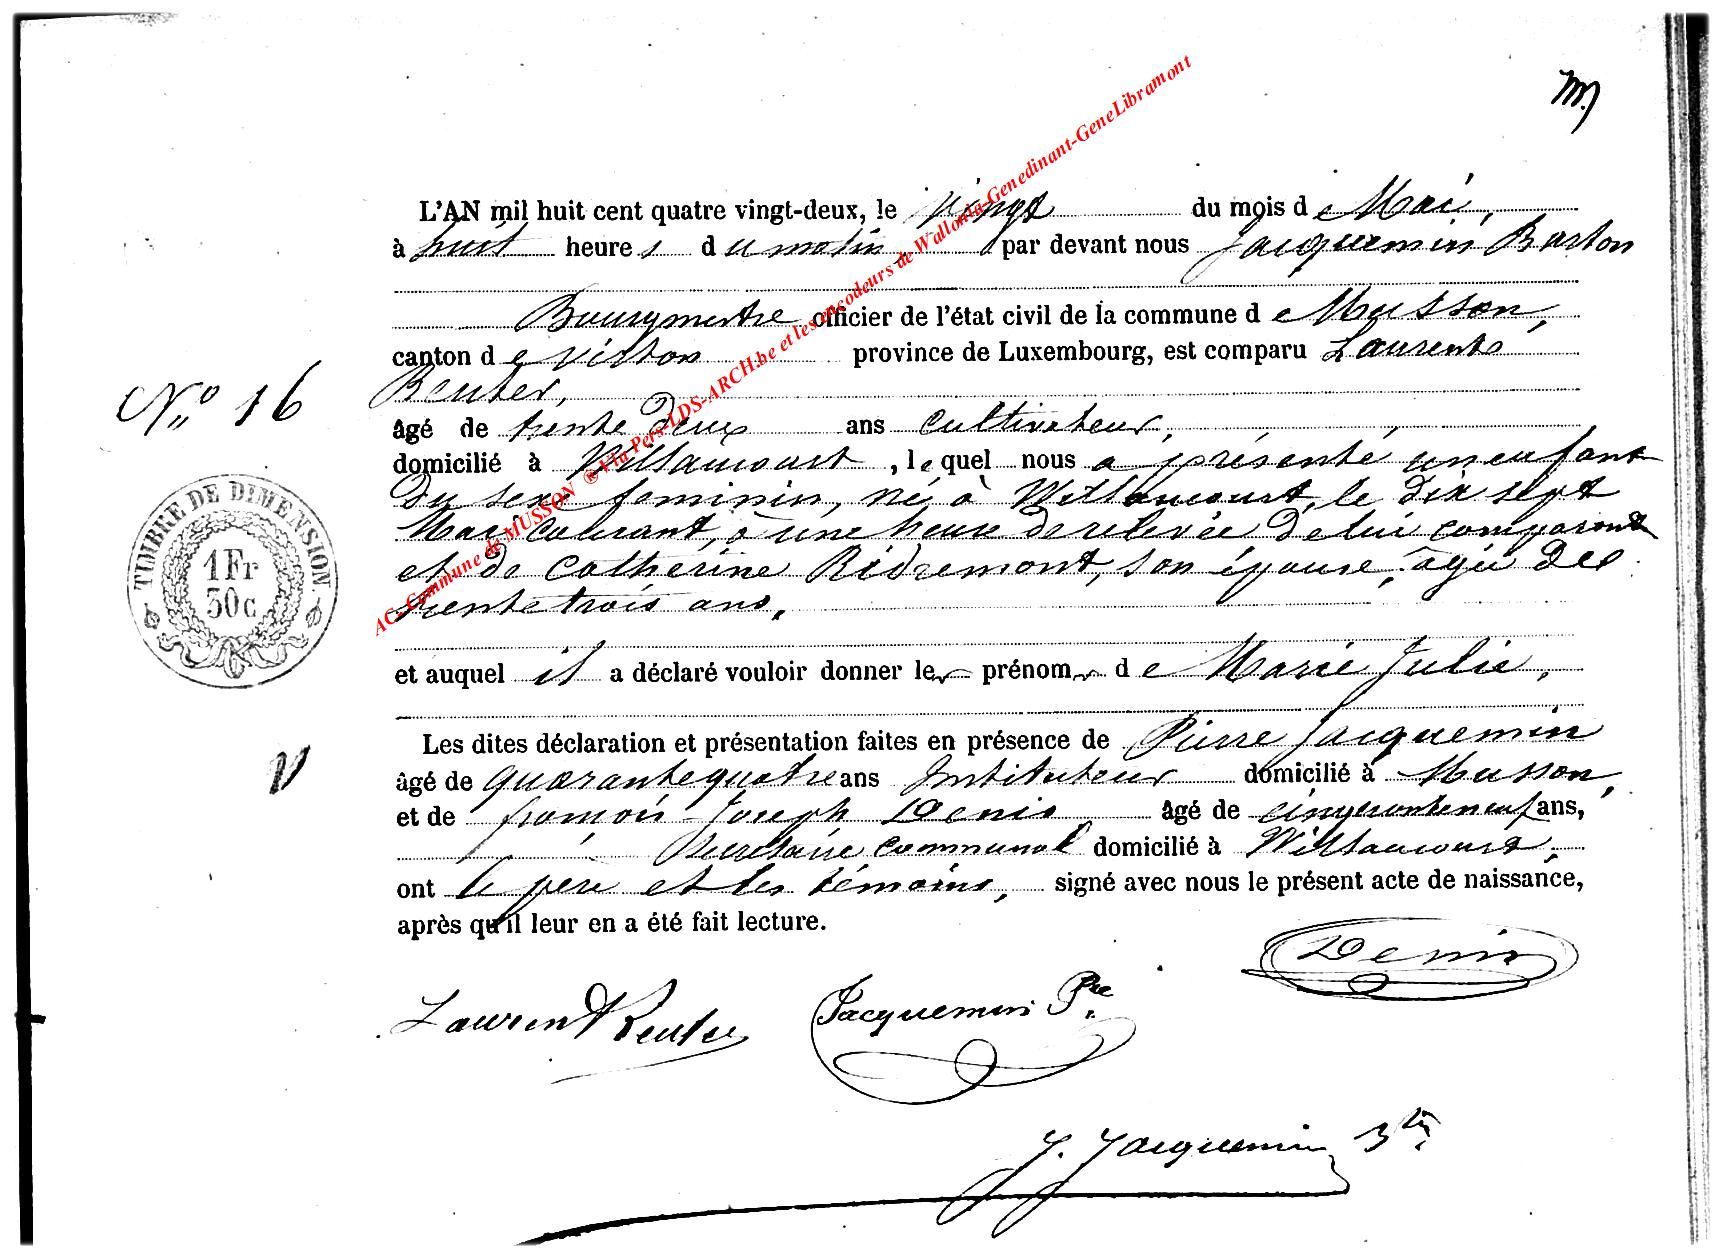 m
L'AN mil huit cent quatre vingt-deux, le vingt du mois de Mai,
à huit heures du matin, par devant nous Jacquemin Barton
Bourgmestre officier de l'état civil de la commune de Musson,
canton de Virton province de Luxembourg, est comparu Laurent
Reuter,
N° 16
âgé de trente deux ans cultivateur,
domicilié à Willancourt, lequel nous a présenté un enfant
du sexe feminin, né à Willancourt, le dix sept
Mai courant, à une heure de relevée de lui comparant
et de Catherine Ridremont, son épouse, âgée de
trente trois ans,
TIMBRE DE DIMENSION
1 Fr
30 c
et auquel il a déclaré vouloir donner le prénom de Marie Julie,
V
Les dites déclaration et présentation faites en présence de Pierre Jacquemin
âgé de quarante quatre ans Instituteur domicilié à Musson,
et de françois-Joseph Denis âgé de cinquante neuf ans,
Secretaire communal domicilié à Willancourt,
ont le père et les témoins, signé avec nous le présent acte de naissance,
après qu'il leur en a été fait lecture.
Denis
Laurent Reuter Jacquemin Pre
J. Jacquemin Btn
AC- Commune de MUSSON ® Via Pers-LDS-ARCH.be et les encodeurs de Wallonia-Genedinant-GeneLibramont